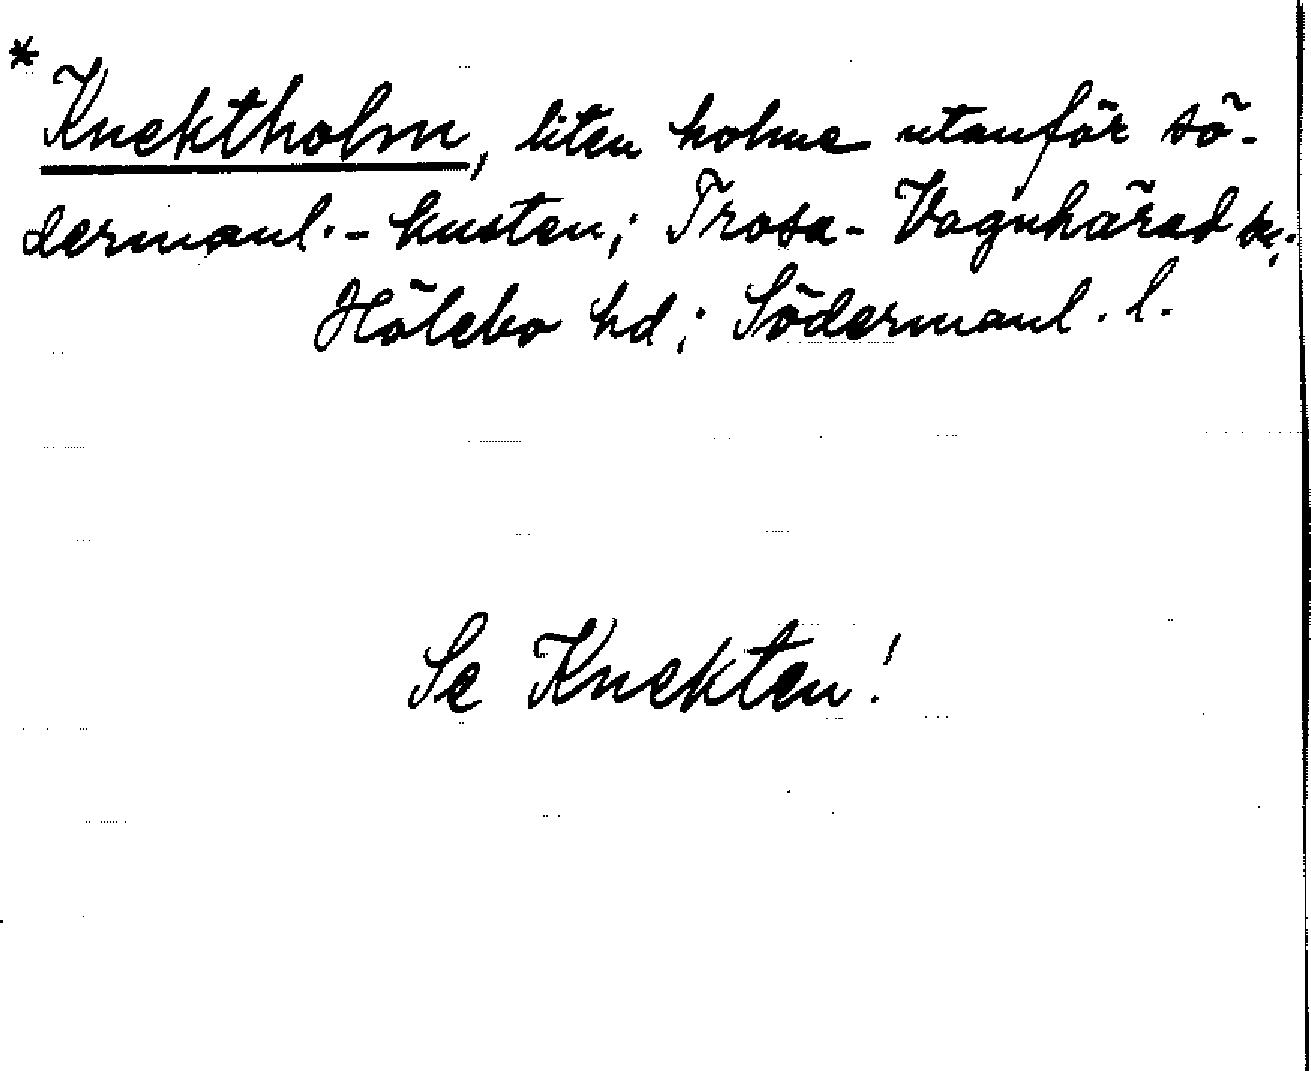 * Knektholm, liten holme utanför sö-
dermanl.-kusten; Trosa-Vagnhärad sn;
Hölebo hd; Södermanl. l.
Se Knekten!